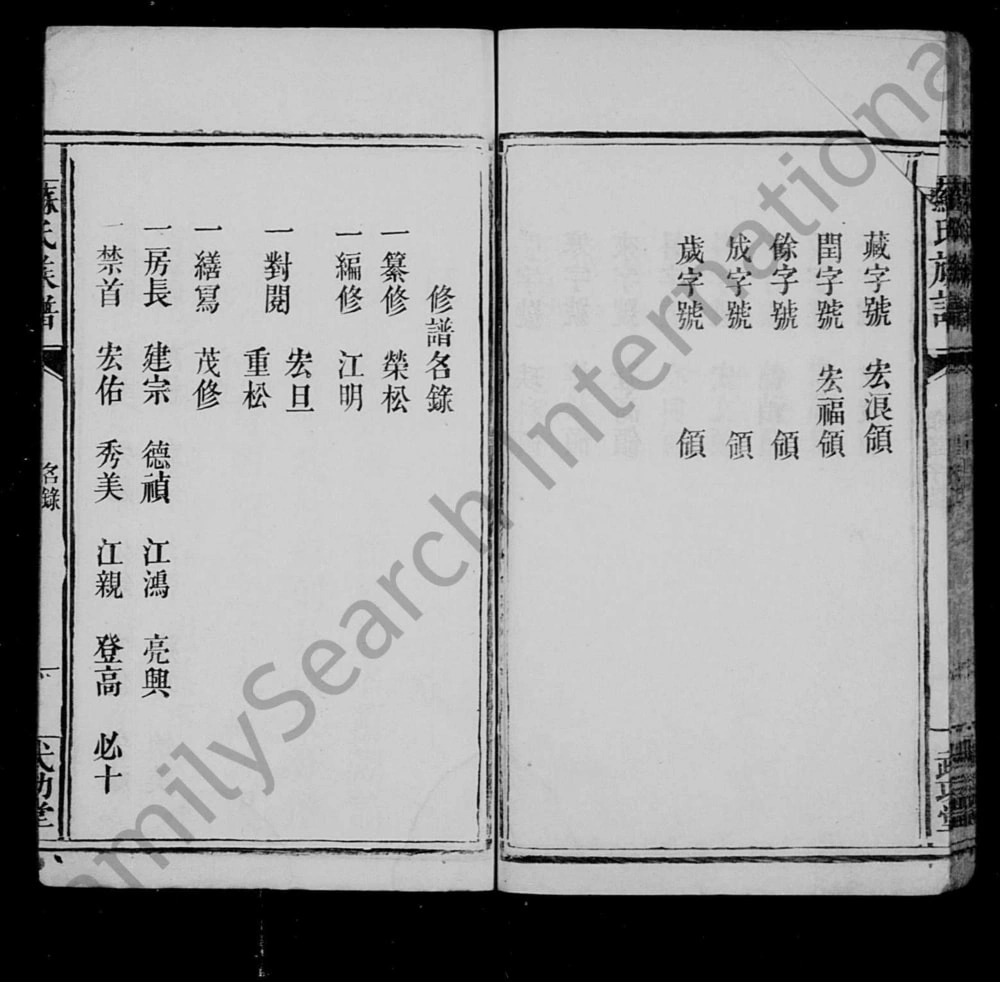 藏字號 宏浪領
閏字號 宏福領
餘字號 領
成字號 領
歲字號 領
修譜名錄
一纂修 榮松
一編修 江明
一對閱 宏旦 重松
一繕寫 茂修
一房長 建宗 德禎 江鴻 亮興
一禁首 宏佑 秀美 江親 登高 必十
氏族譜
名錄
FamilySearch International